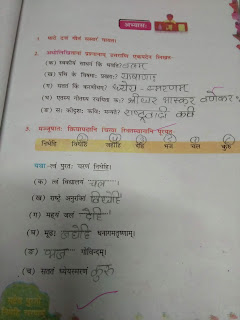 अभ्यासः
२. अधोलिखितानां प्रश्नानाम् उत्तराणि एकपदेन लिखत-
(क) स्वकीयं साधनं किं भवति? बलम्
(ख) पथि के विषमाः प्रखराः? पाषाणाः
(ग) सततं किं करणीयम्? ध्येय-स्मरणम्
(घ) एतस्य गीतस्य रचयिता कः? श्रीधर भास्कर वर्णेकर
(ङ) सः कीदृशः कविः मन्यते? राष्ट्रवादी कवि
३. मञ्जूषातः क्रियापदानि चित्वा रिक्तस्थानानि पूरयत-
निधेहि विधेहि जहीहि देहि भज चल कुरु
यथा-त्वं पुरतः चरणं निधेहि।
(क) त्वं विद्यालयं चल
(ख) राष्ट्रे अनुरक्तिं विधेहि
(ग) मह्यं जलं देहि
(घ) मूढ! जहीहि धनागमतृष्णाम्।
(ङ) भज गोविन्दम्।
(च) सततं ध्येयस्मरणं कुरु